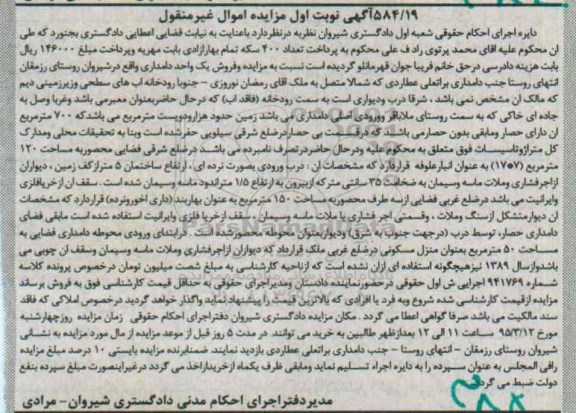 ۵۸۴/۱۹آگهی نوبت اول مزایده اموال غیر منقول
دایره اجرای احکام حقوقی شعبه اول دادگستری شیروان نظربه درنظردارد باعنایت به نیابت قضایی اعطایی دادگستری بجنورد که طی
ان محکوم علیه اقای محمد پرتوی راد ف علی محکوم به پرداخت تعداد ۴۰۰ سکه تمام بهارازادی بابت مهریه وپرداخت مبلغ ۱۴۶۰۰۰ ریال
بابت هزینه دادرسی درحق خانم فریبا جوان قهرمانلو گردیده است نسبت به مزایده وفروش یک واحد دامداری واقع درشیروان روستای رزمقان
انتهای روستا جنب دامداری براتعلی عطاردی که شمالا متصل به ملک اقای رمضان نوروزی – جنوبا رودخانه اب های سطحی وزیرزمینی دیم
که مالک ان مشخص نمی باشد ، شرقا درب ودیواری است به سمت رودخانه (فاقد اب) که درحال حاضربعنوان معبرمی باشد وغربا وصل به
جاده ای خاکی که به سمت روستای ملاباقر وورودی اصلی دامداری می باشد زمین حدود هزارودویست مترمربع می باشدکه ۷۰۰ مترمربع
ان دارای حصار ومابقی بدون حصارمی باشند که درقسمت بی حصاردرضلع شرقی سیلویی حفرشده است وبنا به تحقیقات محلی ومدارک
کل متراژوتاسیسات فوق متعلق به محکوم علیه ودرحال حاضردرتصرف نامبرده می باشد درضلع شرقی فضایی محصوربه مساحت ۱۲۰
مترمربع (۷*۱۷) به عنوان انبارعلوفه قراردارد که مشخصات ان : درب ورودی بصورت نرده ای ، ارتفاع ساختمان ۵ متراز کف زمین ، دیواران
ازاجرفشاری وملات ماسه وسیمان به ضخامت ۳۵ سانتی مترکه ازبیرون به ارتفاع ۱/۵ متراندود ماسه وسیمان شده است . سقف ان ازخرپافلزی
وایرانیت می باشد درضلع غربی فضایی ازسه طرف محصوربه مساحت ۱۵۰ مترمربع به عنوان بهاربند (داری اخورونرده) قراردارد که مشخصات
ان دیوارمتشکل ازسنگ وملات ، وقسمتی اجر فشاری با ملات ماسه وسیمان ، سقف ازخرپا فلزی وایرانیت استفاده شده است مابقی فضای
دامداری حصار، توسط درب (درجهت جنوب به شرق) ودیواربعنوان محوطه محصورشده است . درابتدای ورودی محوطه دامداری فضایی به
مساحت ۵۰ مترمربع بعنوان منزل مسکونی درضلع غربی ملک قرارداد که دیواران ازاجرفشاری وملات ماسه وسیمان وسقف ان چوبی می
باشدوازسال ۱۳۸۹ نیزهیچگونه استفاده ای ازان نشده است که ازناحیه کارشناسی به مبلغ شصت میلیون تومان درخصوص پرونده کلاسه
شماره ۹۴۱۷۶۹ اجرایی ش اول حقوقی درحضورنماینده دادستان ومدیراجرای حقوقی به حداقل قیمت کارشناسی فوق به فروش برساند
مزایده ازقیمت کارشناسی شده شروع وبه فرد یا افرادی که بالاترین قیمت را پیشنهاد نماید واگذار خواهد گردید درخصوص املاکی که فاقد
سند مالکیت می باشد صرفا گواهی اعطا می گردد . مکان مزایده دادگستری شیروان دفتراجرای احکام حقوقی زمان مزایده روزچهارشنبه
مورخ ۹۵/۳/۱۲ ساعت ۱۱ الی ۱۲ بعدازظهر طالبین به خرید می توانند در مدت ۵ روز قبل از موعد مزایده از مال مورد مزایده به نشانی
شیروان روستای رزمقان – انتهای روستا – جنب دامداری براتعلی عطاردی بازدید نمایند. ضمنابرنده مزایده بایستی ۱۰ درصد مبلغ مزایده
رافی المجلس به عنوان سپرده را به دایره اجراء تسلیم نماید ومابقی ظرف یکماه ازخریداراخذ می گردد درغیراینصورت مبلغ سپرده بنفع
دولت ضبط می گردد
مدیردفتراجرای احکام مدنی دادگستری شیروان- مرادی